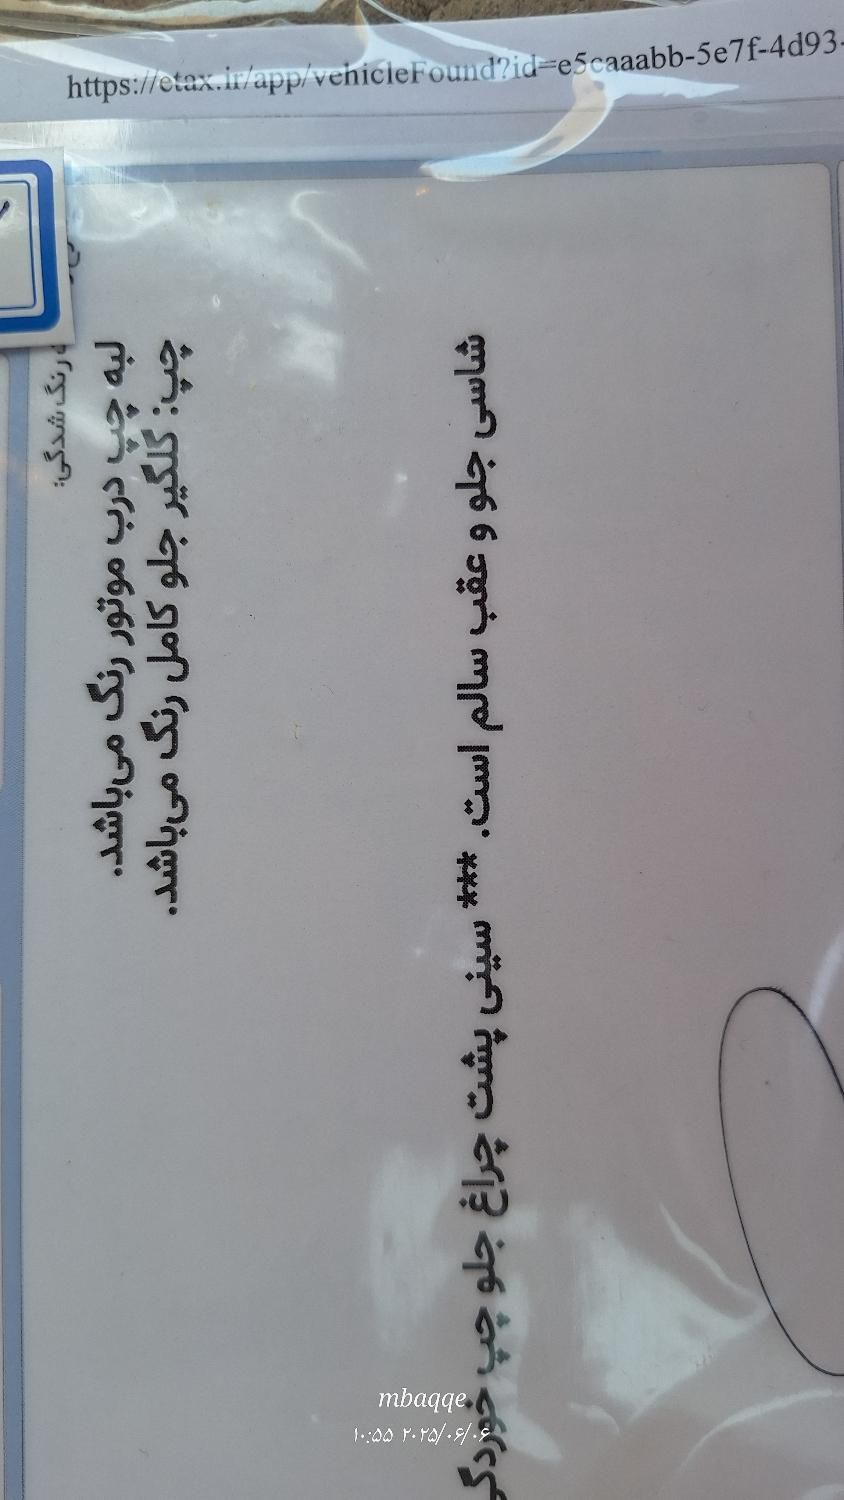 https://etax.ir/app/vehicleFound?id=e5caaabb-5e7f-4d93-
رنگ شدگی:
لبه چپ درب موتور رنگ می‌باشد.
چپ: گلگیر جلو کامل رنگ می‌باشد.
شاسی جلو و عقب سالم است. *** سینی پشت چراغ جلو چپ خوردگی
mbaqqe
۱۰:۵۵ ۲۰۲۵/۰۶/۰۶